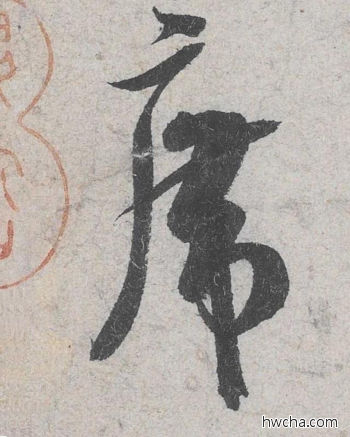 席
hwcha.com